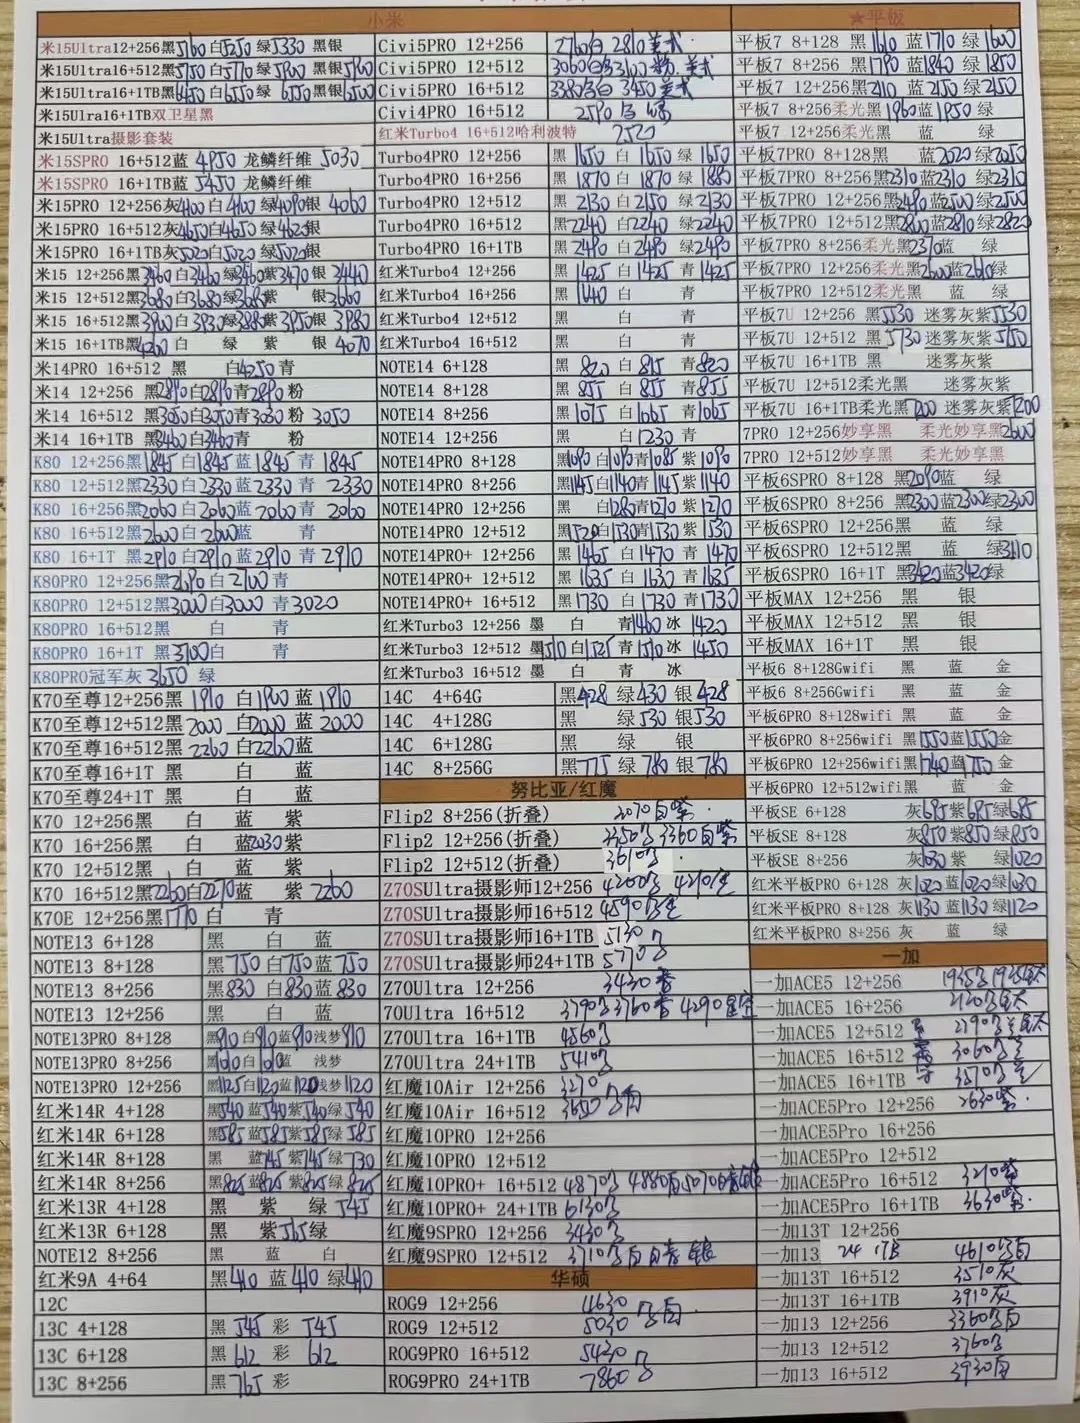 小米
米15Ultra12+256黑5160白5250绿5330 黑银
米15Ultra16+512黑5750白5770绿5900黑银5900
米15Ultra16+1TB黑6450白6550绿6550黑银6500
米15Ulra16+1TB双卫星黑
米15Ultra摄影套装
米15SPRO 16+512蓝 4950 龙鳞纤维 5030
米15SPRO 16+1TB蓝 5450 龙鳞纤维
米15PRO 12+256灰4100白4100绿4090银 4060
米15PRO 16+512灰4650白4650绿4620银
米15PRO 16+1TB灰5020白5020绿5020银
米15 12+256黑3460白3460绿3460紫3470银 3440
米15 12+512黑3680白3680绿3680紫 银3660
米15 16+512黑3900白3930绿3880紫3950银 3980
米15 16+1TB黑4260白 绿 紫 银 4070
米14PRO 16+512 黑 白4250青
米14 12+256 黑2890白2890青2890粉
米14 16+512 黑3050白3050青3030粉 3050
米14 16+1TB 黑3460白3460青 粉
K80 12+256黑1845白1845蓝1845青 1845
K80 12+512黑2330白2330蓝2330青 2330
K80 16+256黑2060白2060蓝2060青 2060
K80 16+512黑2600白2600蓝 青
K80 16+1T 黑2910白2910蓝2910青 2910
K80PRO 12+256黑2690白2700青
K80PRO 12+512黑3000白3000 青3020
K80PRO 16+512黑 白 青
K80PRO 16+1T 黑3700白 青
K80PRO冠军灰 3650 绿
K70至尊12+256黑 1910 白1900蓝 1910
K70至尊12+512黑2000白2000蓝 2000
K70至尊16+512黑2260白2260蓝
K70至尊16+1T 黑 白 蓝
K70至尊24+1T 黑 白 蓝
K70 12+256黑 白 蓝 紫
K70 16+256黑 白 蓝2030紫
K70 12+512黑 白 蓝 紫
K70 16+512黑2260白2270蓝 紫 2260
K70E 12+256黑1770白 青
NOTE13 6+128 黑 白 蓝
NOTE13 8+128 黑750白750蓝750
NOTE13 8+256 黑830 白830蓝830
NOTE13 12+256 黑 白 蓝
NOTE13PRO 8+128 黑910白910蓝910浅梦910
NOTE13PRO 8+256 黑1010白1010蓝 浅梦
NOTE13PRO 12+256 黑1125白1120蓝1120浅梦1120
红米14R 4+128 黑540蓝540紫540绿540
红米14R 6+128 黑585蓝585紫585绿585
红米14R 8+128 黑 蓝745紫745绿730
红米14R 8+256 黑825蓝825紫825绿825
红米13R 4+128 黑 紫 绿 545
红米13R 6+128 黑 紫565绿
NOTE12 8+256 黑 蓝 白
红米9A 4+64 黑410 蓝410 绿410
12C
13C 4+128 黑 545 彩 545
13C 6+128 黑 612 彩 612
13C 8+256 黑 765 彩
Civi5PRO 12+256 2760白 2810美式
Civi5PRO 12+512 3060白3100粉 美式
Civi5PRO 16+512 3380白 3450美式
Civi4PRO 16+512 2590
红米Turbo4 16+512哈利波特 2520
Turbo4PRO 12+256 黑 1650 白 1650 绿 1650
Turbo4PRO 16+256 黑 1870 白 1870 绿 1880
Turbo4PRO 12+512 黑 2130 白 2150 绿 2130
Turbo4PRO 16+512 黑 2240白2240绿2240
Turbo4PRO 16+1TB 黑 2490白 2490绿2490
红米Turbo4 12+256 黑 1425白 1425青 1425
红米Turbo4 16+256 黑 1640 白 青
红米Turbo4 12+512 黑 白 青
红米Turbo4 16+512 黑 白 青
NOTE14 6+128 黑 820 白 815 青820
NOTE14 8+128 黑 855 白 855 青855
NOTE14 8+256 黑1075 白1065青1065
NOTE14 12+256 黑 白1230青
NOTE14PRO 8+128 黑1090白1090青1085紫1090
NOTE14PRO 8+256 黑1145白1140青1145紫1140
NOTE14PRO 12+256 黑 白1280青1270紫1270
NOTE14PRO 12+512 黑1520白1530青1530紫1530
NOTE14PRO+ 12+256 黑1465 白1470 青1470
NOTE14PRO+ 12+512 黑1635 白 1630 青1635
NOTE14PRO+ 16+512 黑1730 白1730 青1730
红米Turbo3 12+256 墨 白 青1400冰 1420
红米Turbo3 12+512 墨1510白1525青1510冰 1450
红米Turbo3 16+512 墨 白 青 冰
14C 4+64G 黑428 绿430 银428
14C 4+128G 黑 绿530 银530
14C 6+128G 黑 绿 银
14C 8+256G 黑775绿780 银780
努比亚/红魔
Flip2 8+256(折叠) 3070白紫
Flip2 12+256(折叠) 3350 3360白紫
Flip2 12+512(折叠) 3610
Z70SUltra摄影师12+256 4260 4210
Z70SUltra摄影师16+512 4590
Z70SUltra摄影师16+1TB 5130
Z70SUltra摄影师24+1TB 5770
Z70Ultra 12+256 3430
70Ultra 16+512 3790 3760 4290星空
Z70Ultra 16+1TB 4560
Z70Ultra 24+1TB 5410
红魔10Air 12+256 3270
红魔10Air 16+512 3650
红魔10PRO 12+256
红魔10PRO 12+512
红魔10PRO+ 16+512 4870 4880白5070
红魔10PRO+ 24+1TB 6130
红魔9SPRO 12+256 3430
红魔9SPRO 12+512 3710
华硕
ROG9 12+256 4630
ROG9 12+512 5030
ROG9PRO 16+512 5430
ROG9PRO 24+1TB 7860
★平板
平板7 8+128 黑 1610 蓝1710 绿 1600
平板7 8+256 黑1790 蓝1840 绿1850
平板7 12+256 黑2110 蓝2150 绿2150
平板7 8+256柔光黑1960蓝1950绿
平板7 12+256柔光黑 蓝 绿
平板7PRO 8+128黑 蓝2020绿2050
平板7PRO 8+256黑2310蓝2310 绿2310
平板7PRO 12+256黑2480蓝2500绿2500
平板7PRO 12+512黑2800蓝2810绿2820
平板7PRO 8+256柔光黑2370蓝 绿
平板7PRO 12+256柔光黑2600蓝2610绿
平板7PRO 12+512柔光黑 蓝 绿
平板7U 12+256 黑5530 迷雾灰紫5530
平板7U 12+512 黑5730 迷雾灰紫5750
平板7U 16+1TB 黑 迷雾灰紫
平板7U 12+512柔光黑 迷雾灰紫
平板7U 16+1TB柔光黑7200 迷雾灰紫7200
7PRO 12+256妙享黑 柔光妙享黑2600
7PRO 12+512妙享黑 柔光妙享黑
平板6SPRO 8+128 黑2090蓝 绿
平板6SPRO 8+256黑2300蓝2300绿2300
平板6SPRO 12+256黑 蓝 绿
平板6SPRO 12+512黑 蓝 绿3110
平板6SPRO 16+1T 黑3420蓝3420绿
平板MAX 12+256 黑 银
平板MAX 12+512 黑 银
平板MAX 16+1T 黑 银
平板6 8+128Gwifi 黑 蓝 金
平板6 8+256Gwifi 黑 蓝 金
平板6PRO 8+128wifi 黑 蓝 金
平板6PRO 8+256wifi 黑1550蓝1550金
平板6PRO 12+256wifi黑1740蓝1750金
平板6PRO 12+512wifi黑 蓝 金
平板SE 6+128 灰685紫685绿685
平板SE 8+128 灰850紫850绿850
平板SE 8+256 灰1030紫 绿1020
红米平板PRO 6+128 灰1020蓝1020绿1030
红米平板PRO 8+128 灰1130蓝1130绿1120
红米平板PRO 8+256 灰 蓝 绿
一加
一加ACE5 12+256 1935
一加ACE5 16+256 2120
一加ACE5 12+512 2790
一加ACE5 16+512 3060
一加ACE5 16+1TB 3570
一加ACE5Pro 12+256 2630紫
一加ACE5Pro 16+256
一加ACE5Pro 12+512
一加ACE5Pro 16+512 3210紫
一加ACE5Pro 16+1TB 3630紫
一加13T 12+256
一加13 24 1TB 4610
一加13T 16+512 3510灰
一加13T 16+1TB 3910灰
一加13 12+256 3360
一加13 12+512 3760
一加13 16+512 3930白